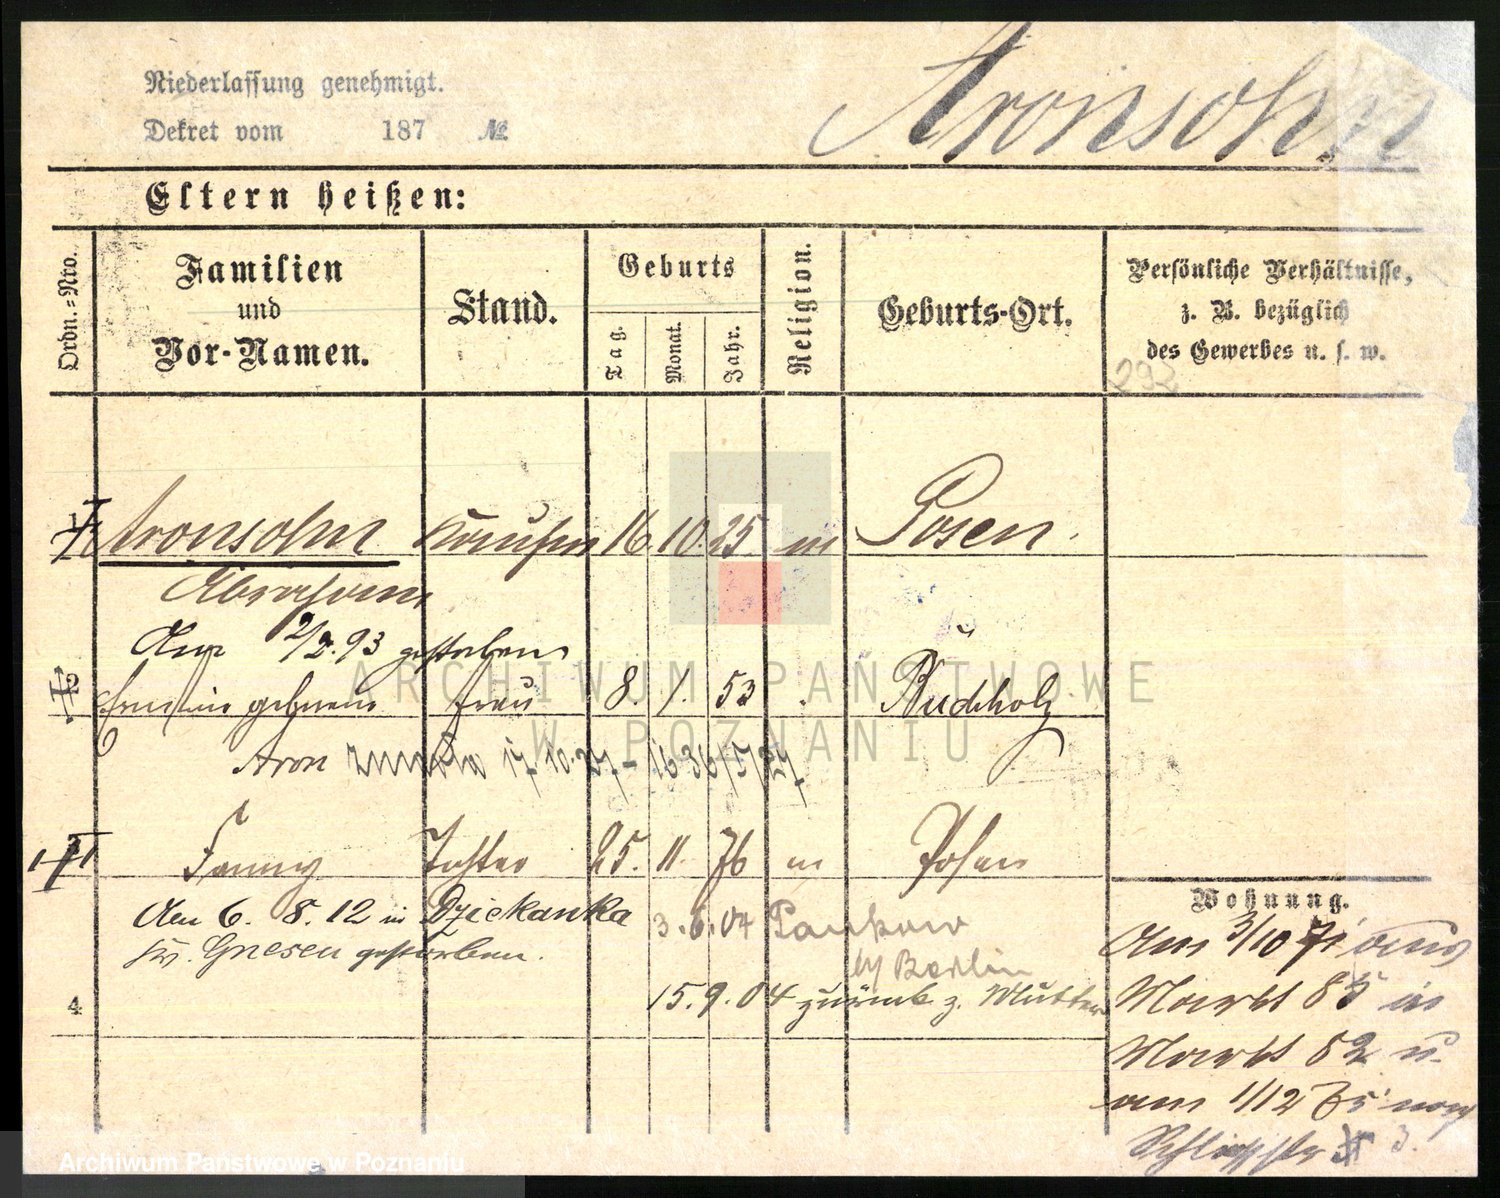 Niederlassung genehmigt.
Dekret vom 187 №
Aronsohn
Eltern heißen:
Ordn.=Nro.
Familien
und
Vor-Namen.
Stand.
Geburts
Tag.
Monat.
Jahr.
Religion.
Geburts-Ort.
Persönliche Verhältnisse,
z. B. bezüglich
des Gewerbes u. s. w.
292
1 Aronsohn Kaufm 16. 10. 25. m Posen.
Abraham
Am 2/2. 93 gestorben
2 geborene Frau 8. 1. 53 Buchholz
Aron zmarła 17.10.27 - 1636/5/27
3 Fanny Tochter 25. 11. 76 m Posen
Am 6. 8. 12 in Dziekanka 3.6.04 Pankow
Kr. Gnesen gestorben. b/ Berlin
4 15.9.04 zurück z. Mutter
Wohnung.
Am 3/10 71 aus
Markt 85 in
Markt 82 u.
am 1/12 75 nach
Schloßstr 3.
ARCHIWUM PAŃSTWOWE
W POZNANIU
Archiwum Państwowe w Poznaniu